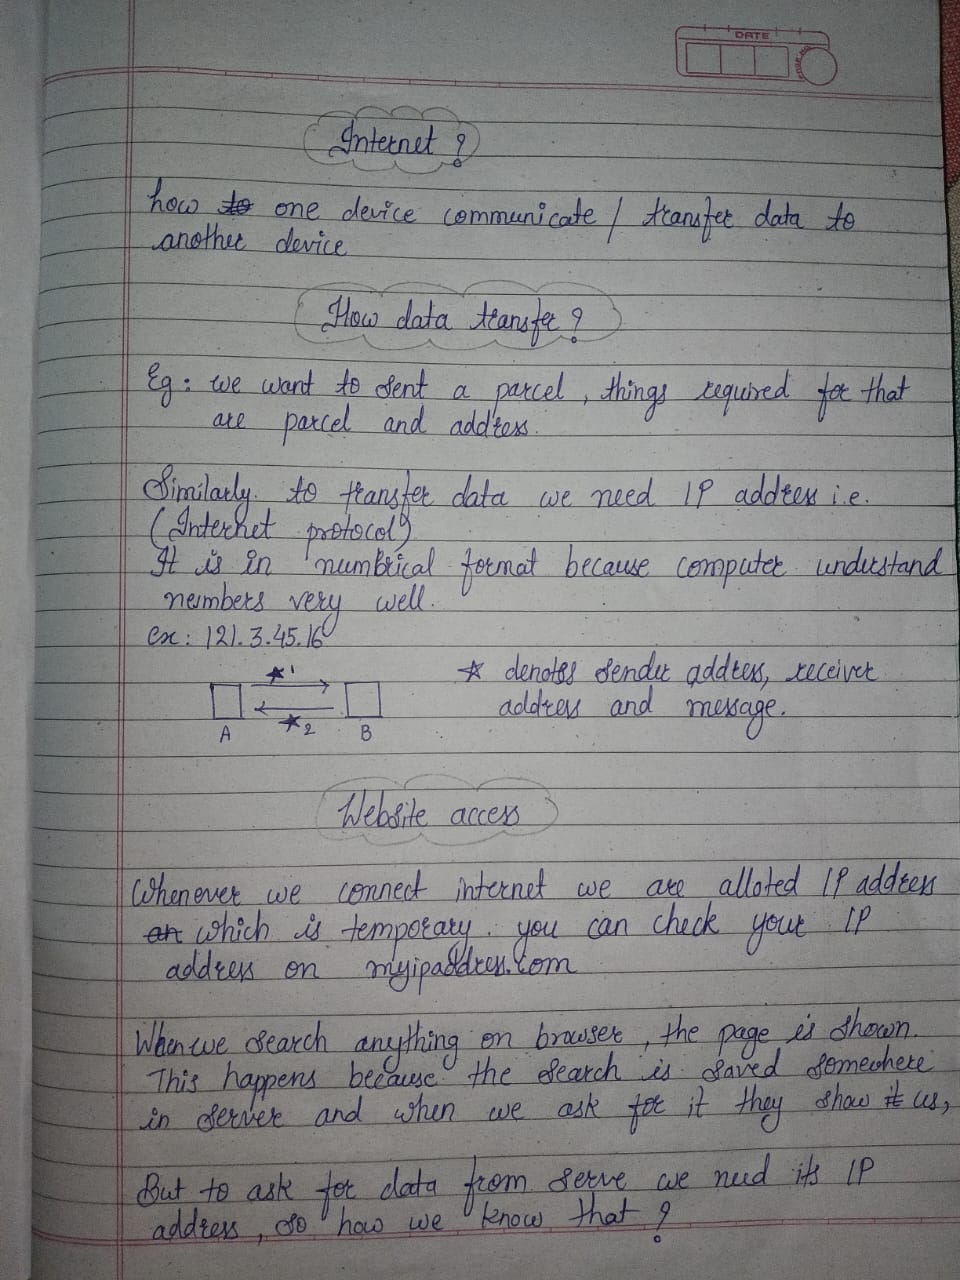 DATE
PAGE NO.
Internet ?
how to one device communicate / transfer data to
another device
How data transfer ?
Eg : we want to sent a parcel , things required for that
are parcel and address.
Similarly. to transfer data we need IP address i.e.
(Internet protocol)
It is in numbrical format because computer understand
numbers very well.
ex : 121.3.45.16
★1
★ denotes sender address, receiver
address and message.
★2
A B
Website access
Whenever we connect internet we are alloted IP address
an which is temporary. you can check your IP
address on myipaddress.com
When we search anything on browser , the page is shown.
This happens because the search is saved somewhere
in server and when we ask for it they show it us,
But to ask for data from serve we need its IP
address , so how we know that ?